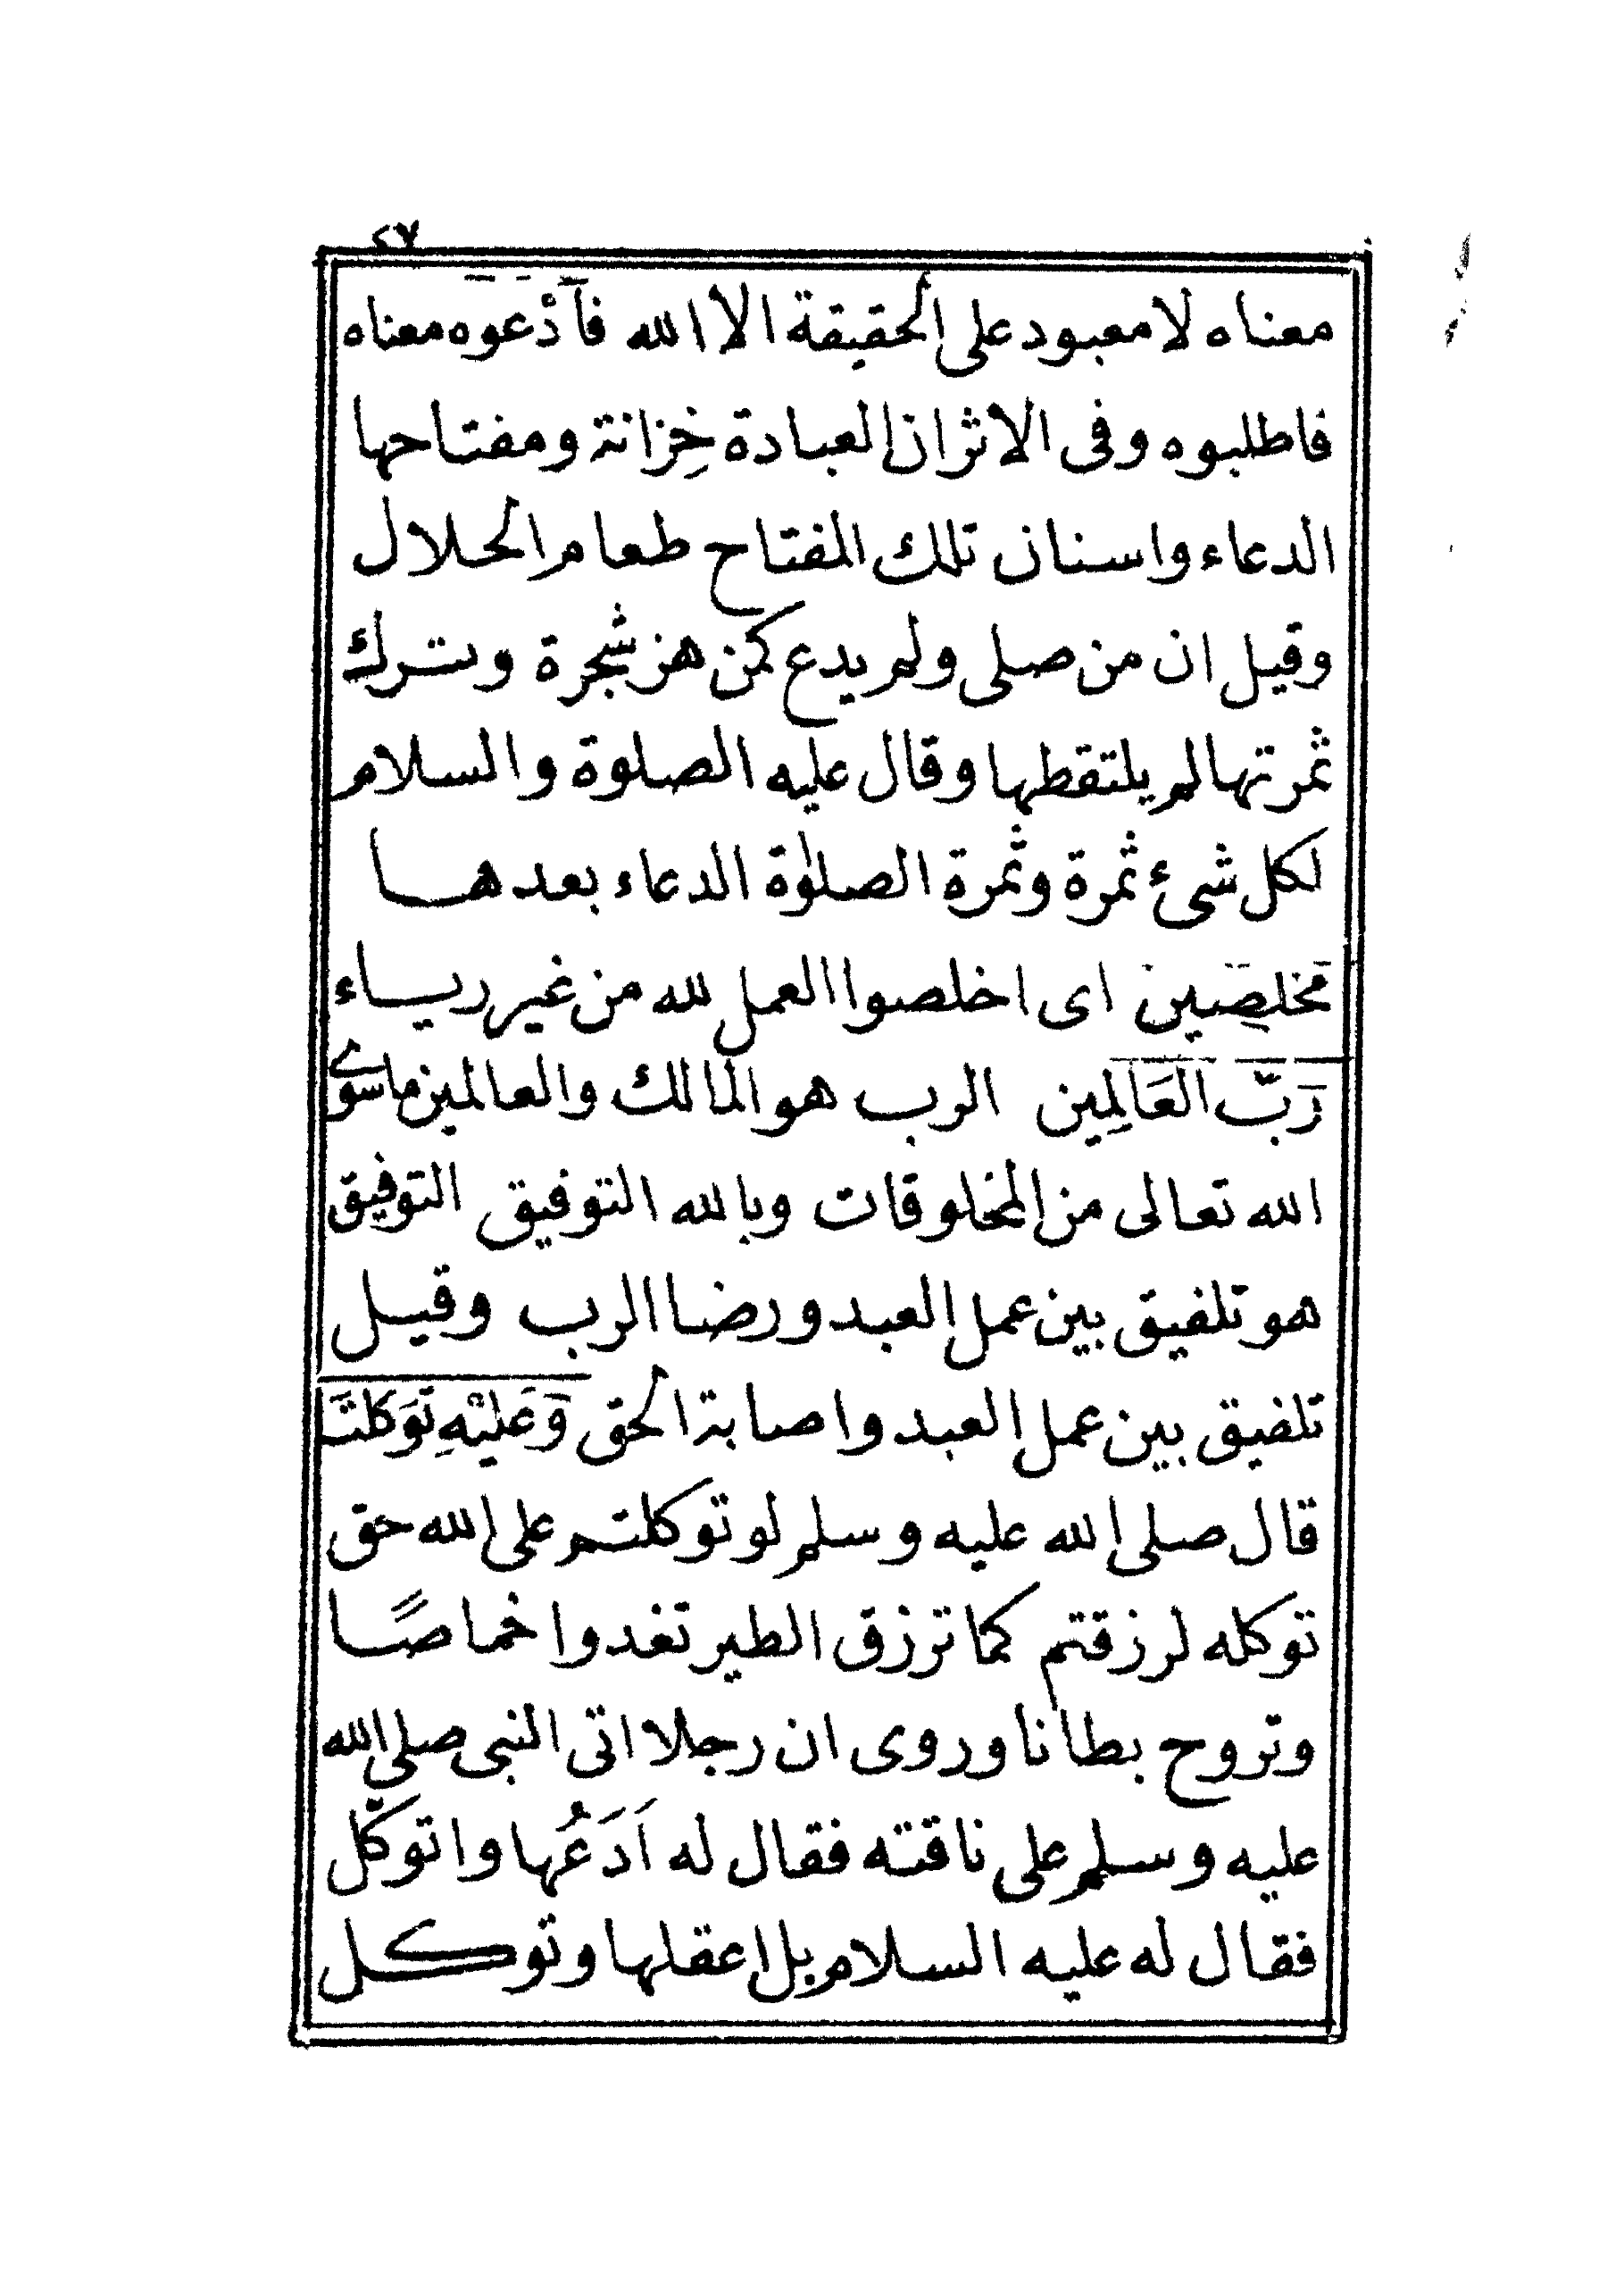 ٢٧
معناه لا معبود على الحقيقة الا الله فَادْعوه معناه
فاطلبوه وفى الاثر ان العبادة خِزانة ومفتاحها
الدعاء واسنان تلك المفتاح طعام الحلال
وقيل ان من صلى ولم يدع كمن هز شجرة وترك
ثمرتها لم يلتقطها وقال عليه الصلوة والسلام
لكل شئ ثمرة وثمرة الصلوٰة الدعاء بعدها
مخلصِين اى اخلصوا العمل لله من غير رياء
رَبّ العَالمِين الرب هو المالك والعالمين ماسوى
الله تعالى من المخلوقات وبالله التوفيق التوفيق
هو تلفيق بين عمل العبد ورضا الرب وقيل
تلفيق بين عمل العبد واصابة الحق وَعَليْهِ تَوَكلتُ
قال صلى الله عليه وسلم لو توكلتم على الله حق
توكله لرزقتم كما ترزق الطير تغدوا خماصًا
وتروح بطانا وروى ان رجلا اتى النبى صلى الله
عليه وسلم على ناقته فقال له اَدَعُها واتوكّل
فقال له عليه السلام بل اعقلها وتوكل